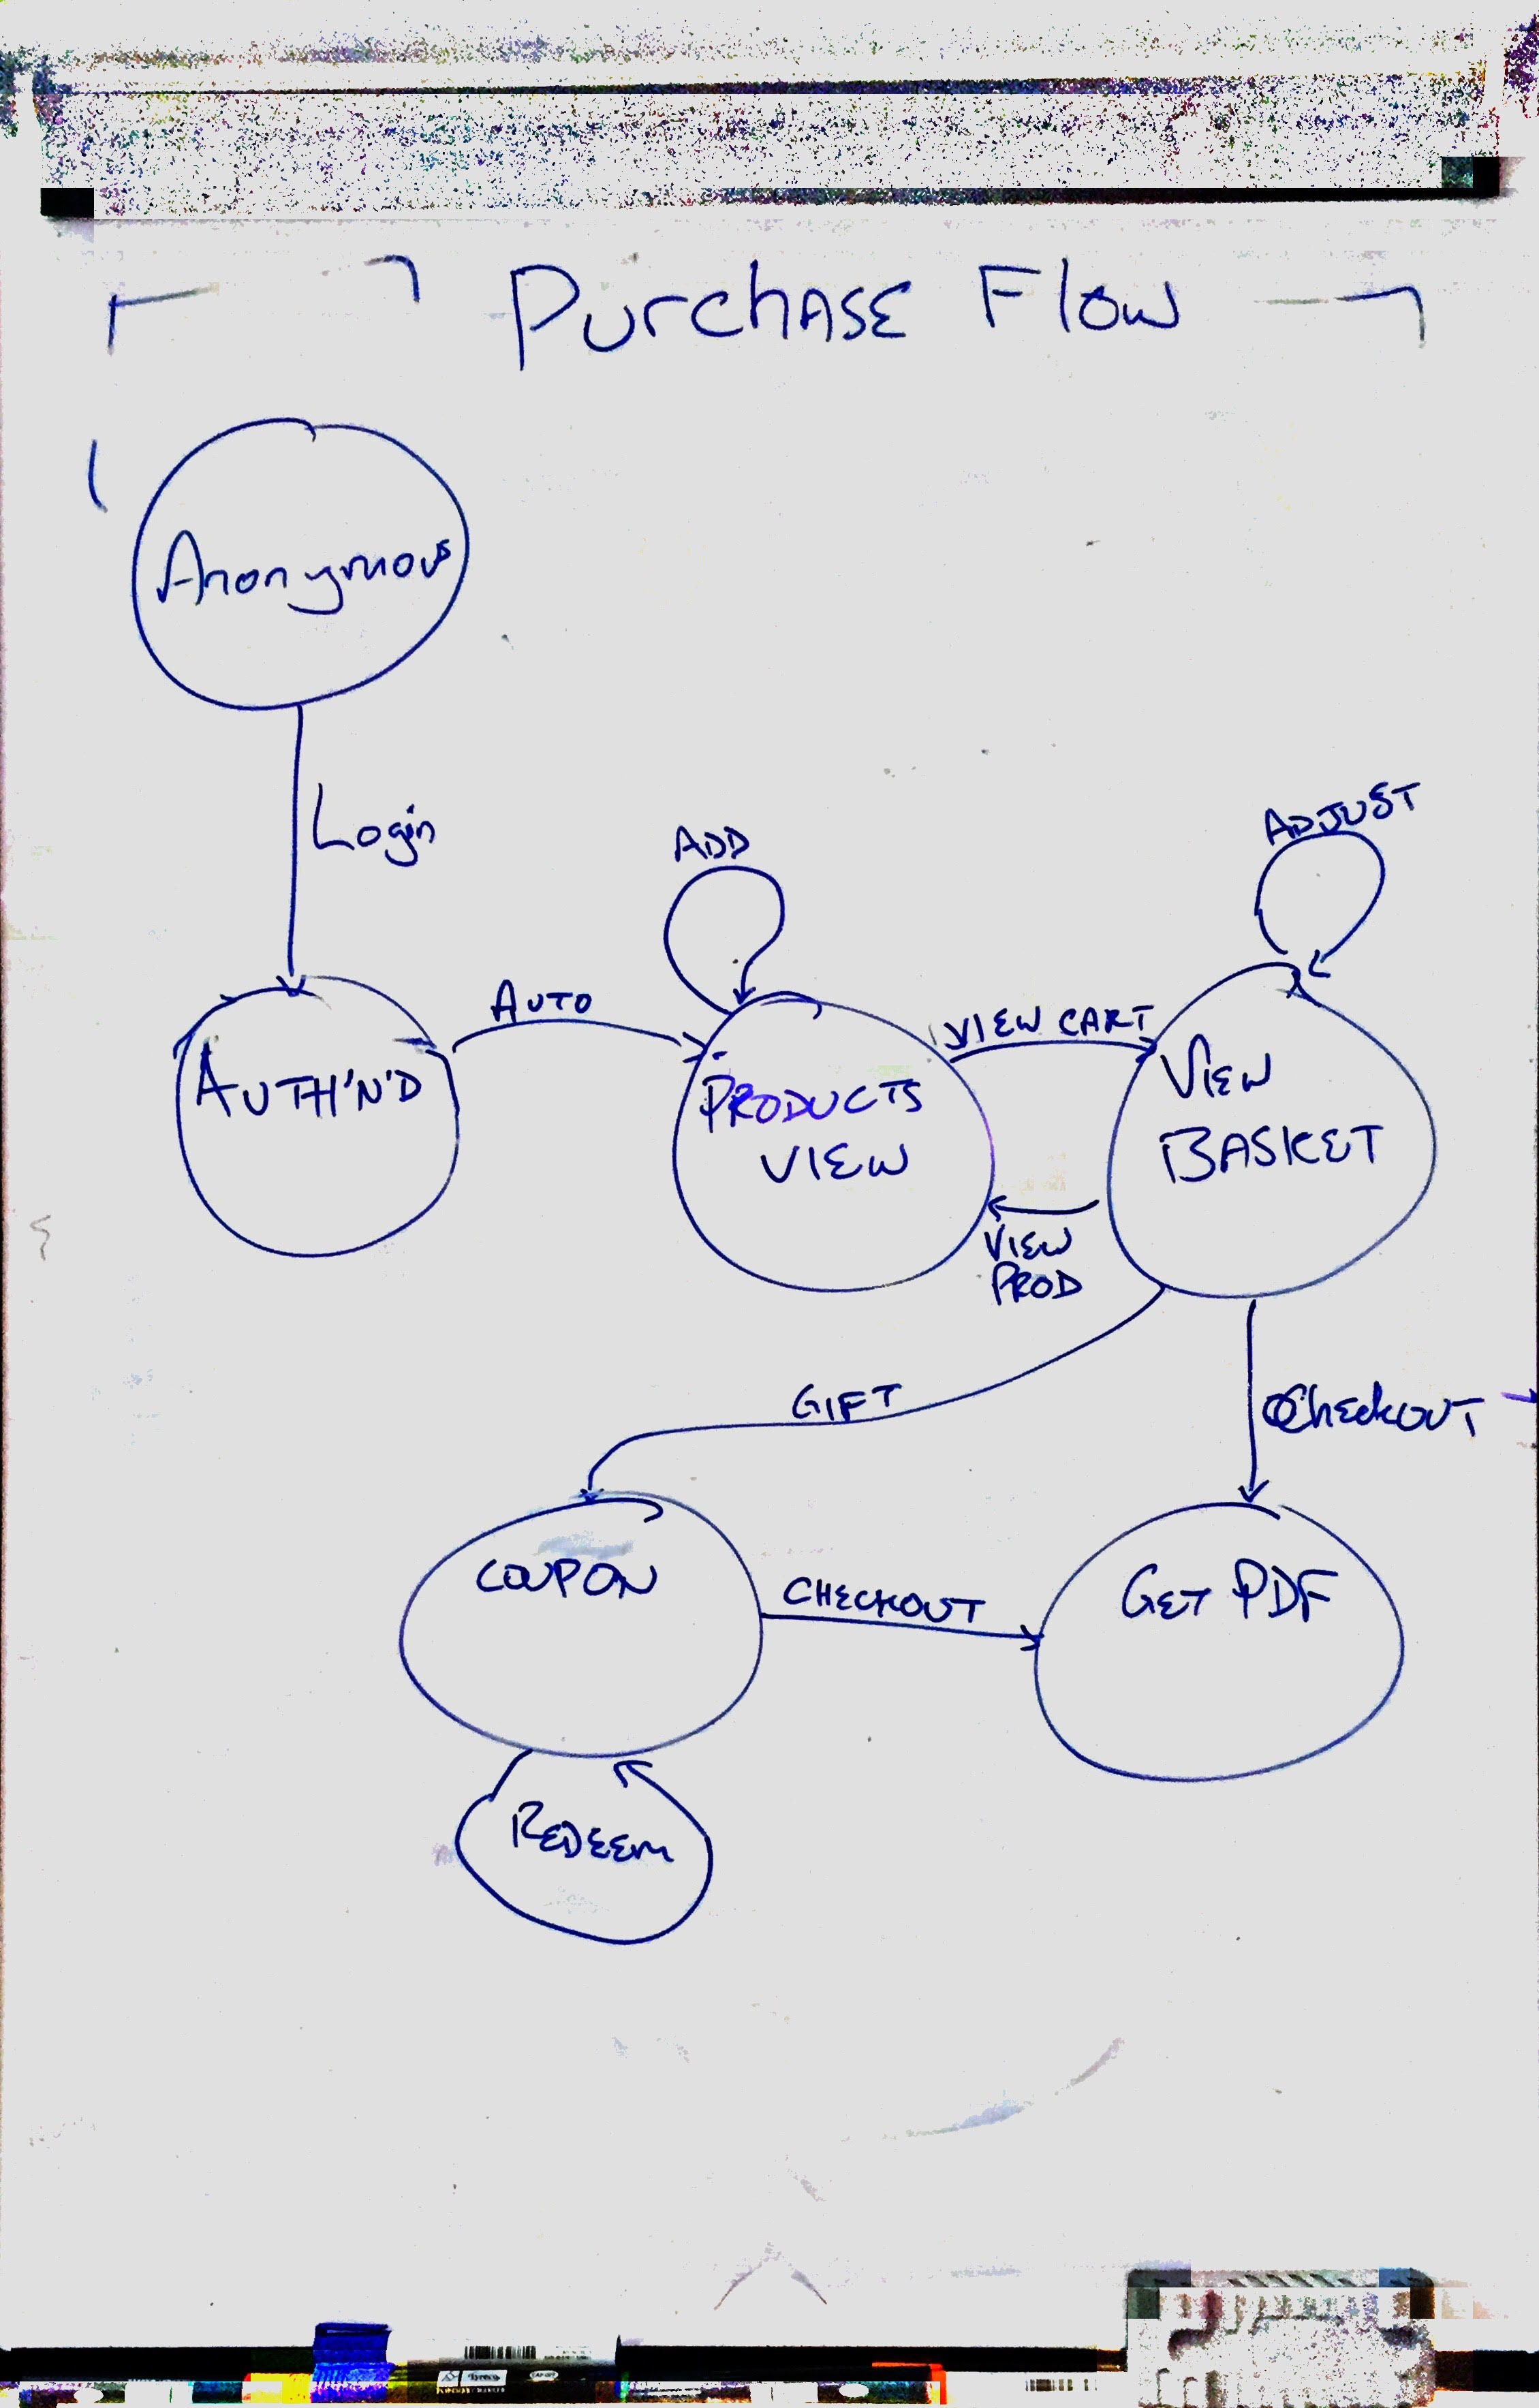 Purchase Flow
Anonymous
Login
ADD
ADJUST
AUTO
VIEW CART
AUTH'N'D
PRODUCTS
VIEW
VIEW
BASKET
VIEW
PROD
GIFT
Checkout
COUPON
CHECKOUT
GET PDF
REDEEM